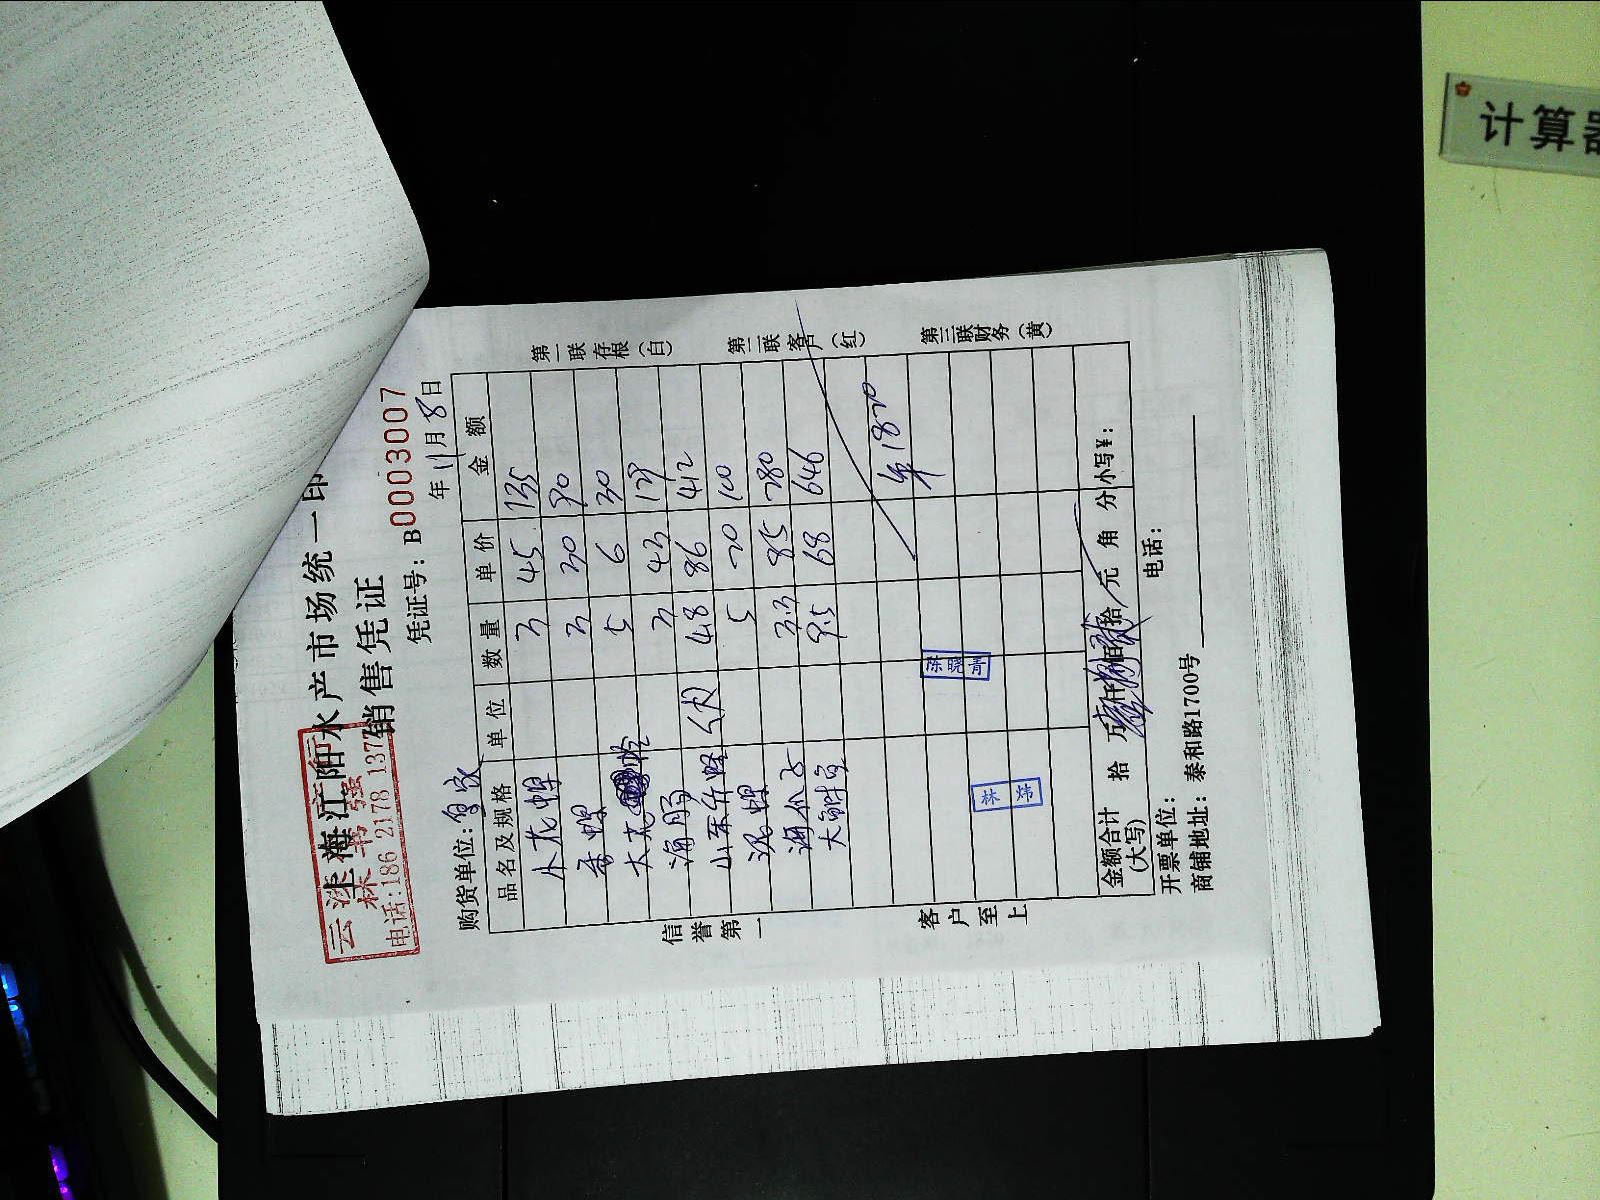 上海江阳水产市场统一印
销售凭证
云
林书强
电话:186 2178 137
凭证号: B0003007
年 11月 8日
购货单位:
品名及规格 单位 数量 单价 金额
小花甲 3 45 135
香螺 3 30 90
大 5 6 30
海肠 3 43 129
山东开蛏 4.8 86 412
泥螺 5 20 100
海 3.3 85 280
大鲜 9.5 68 646
1820
陈晓青
林 炜
金额合计(大写) 拾 万 仟 佰 拾 元 角 分 小写¥:
开票单位: 电话:
商铺地址: 泰和路1700号
信誉第一
客户至上
第一联存根(白)
第二联客户(红)
第三联财务(黄)
计算器